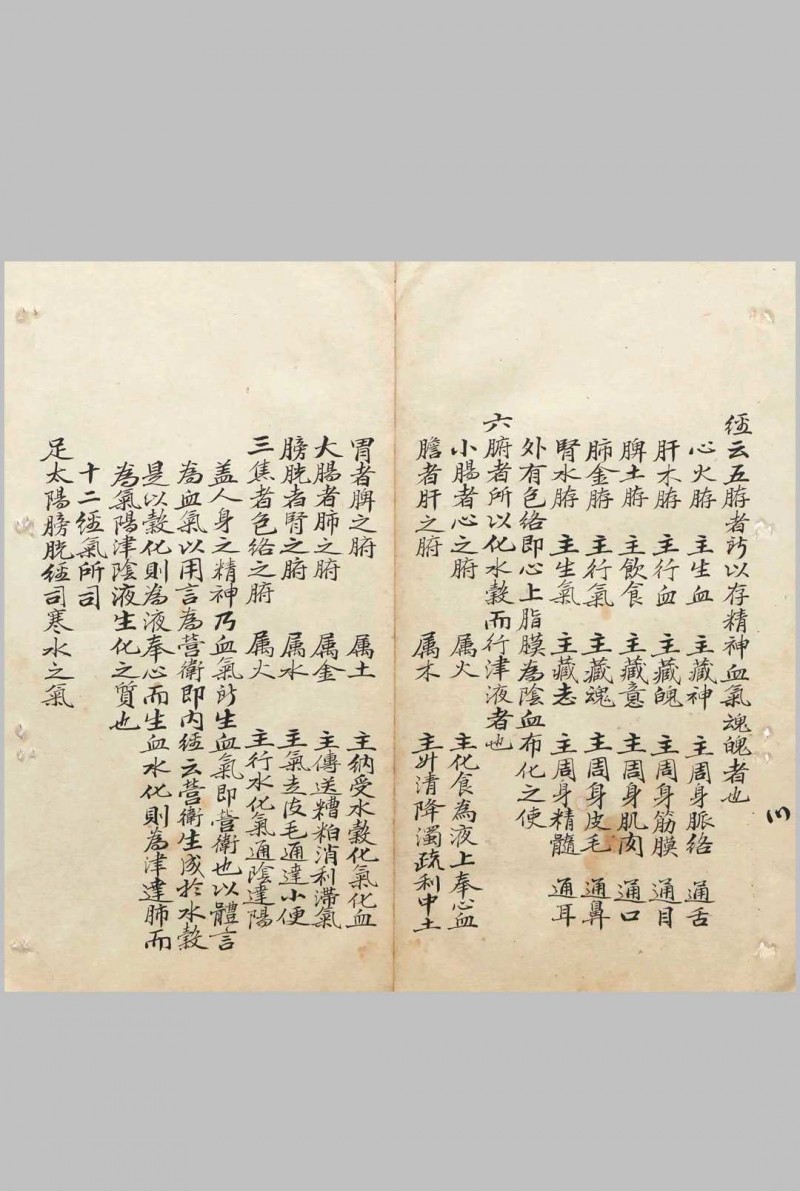 經云五臓者所以存精神血氣魂魄者也
心火臓 主生血 主藏神 主周身脈络 通舌
肝木臓 主行血 主藏魄 主周身筋膜 通目
脾土臓 主飲食 主藏意 主周身肌肉 通口
肺金臓 主行氣 主藏魂 主周身皮毛 通鼻
腎水臓 主生氣 主藏志 主周身精髓 通耳
外有包络即心上脂膜為陰血布化之使
六腑者所以化水穀而行津液者也
小腸者心之腑 属火 主化食為液上奉心血
膽者肝之腑 属木 主升清降濁疏利中土
胃者脾之腑 属土 主納受水穀化氣化血
大腸者肺之腑 属金 主傳送糟粕消利滞氣
膀胱者腎之腑 属水 主氣走皮毛通達小便
三焦者包络之腑 属火 主行水化氣通陰達陽
盖人身之精神乃血氣所生血氣即营衛也以體言
為血氣以用言為营衛即内經云营衛生成於水穀
是以穀化則為液奉心而生血水化則為津達肺而
為氣陽津陰液生化之質也
十二經氣所司
足太陽膀胱經司寒水之氣